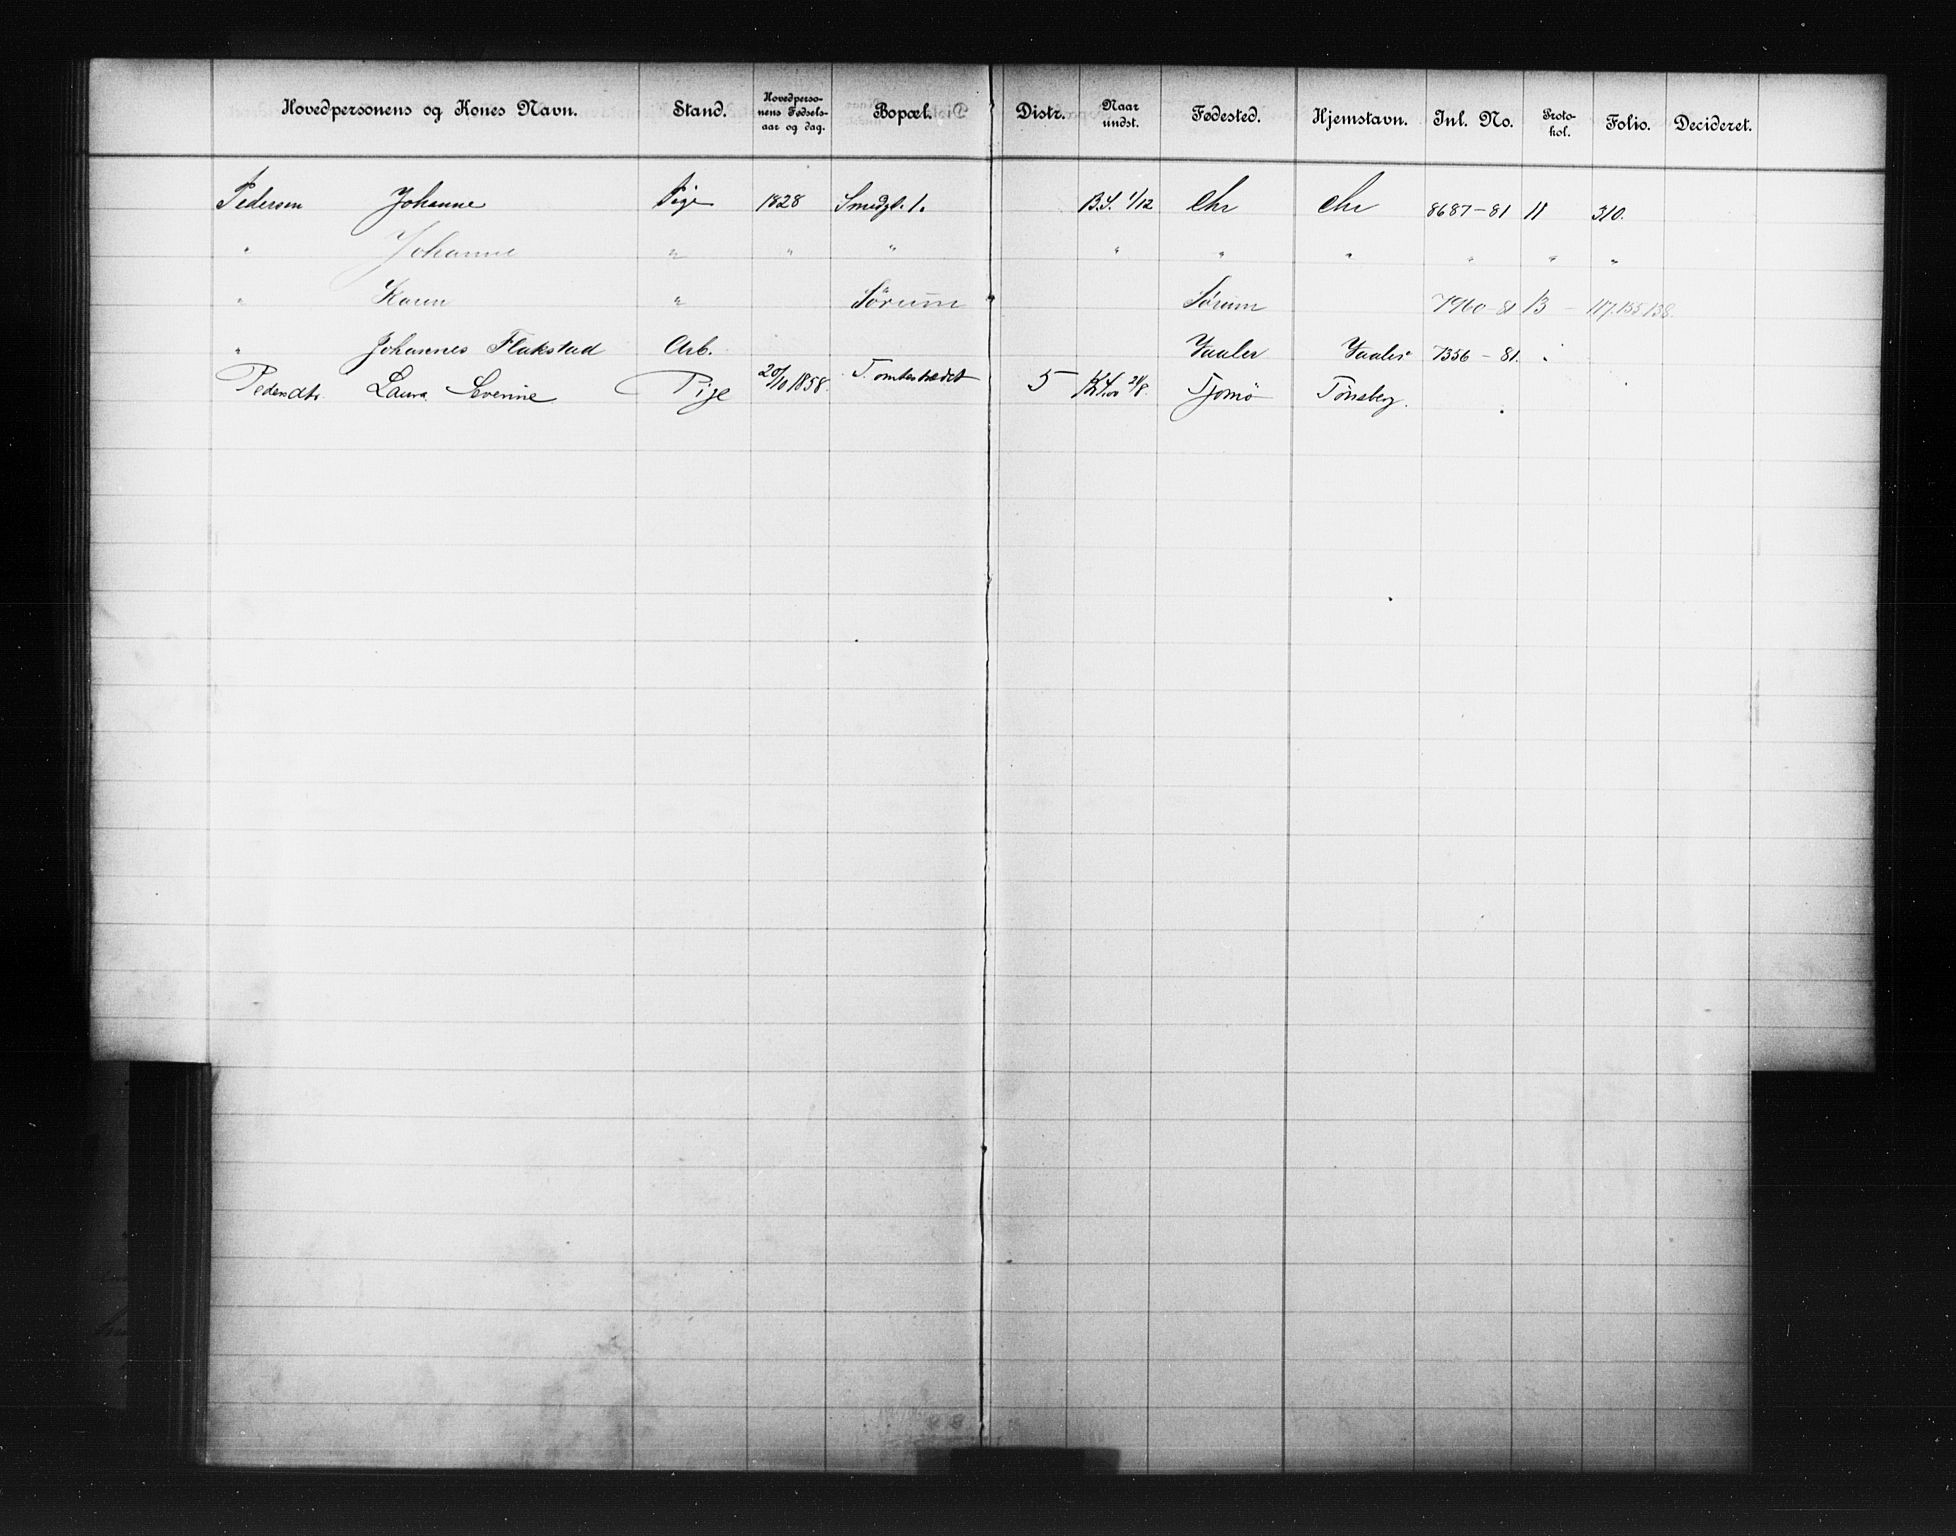 Hovedpersonens og Kones Navn. Stand. Hovedperso-nens Fødsels-aar og dag. Bopæl. Distr. Naar undst. Fødested. Hjemstavn. Inl. No. Proto-kol. Folio. Decideret.
Pedersen Johanne Pige 1828 Smedgt. 1. B.S. 1/12 Chr Chr 8687-81 11 310.
" Johanne " " " " " " " " "
" Karen " Sørum Sørum 7960-81 13 - 117.155.138.
" Johannes Flakstad Arb. Vaaler Vaaler 7356-81.
Pedersdtr. Laura Severine Pige 20/10 1858 Tomtestrædet 5 21/8. Tjømø Tønsberg.